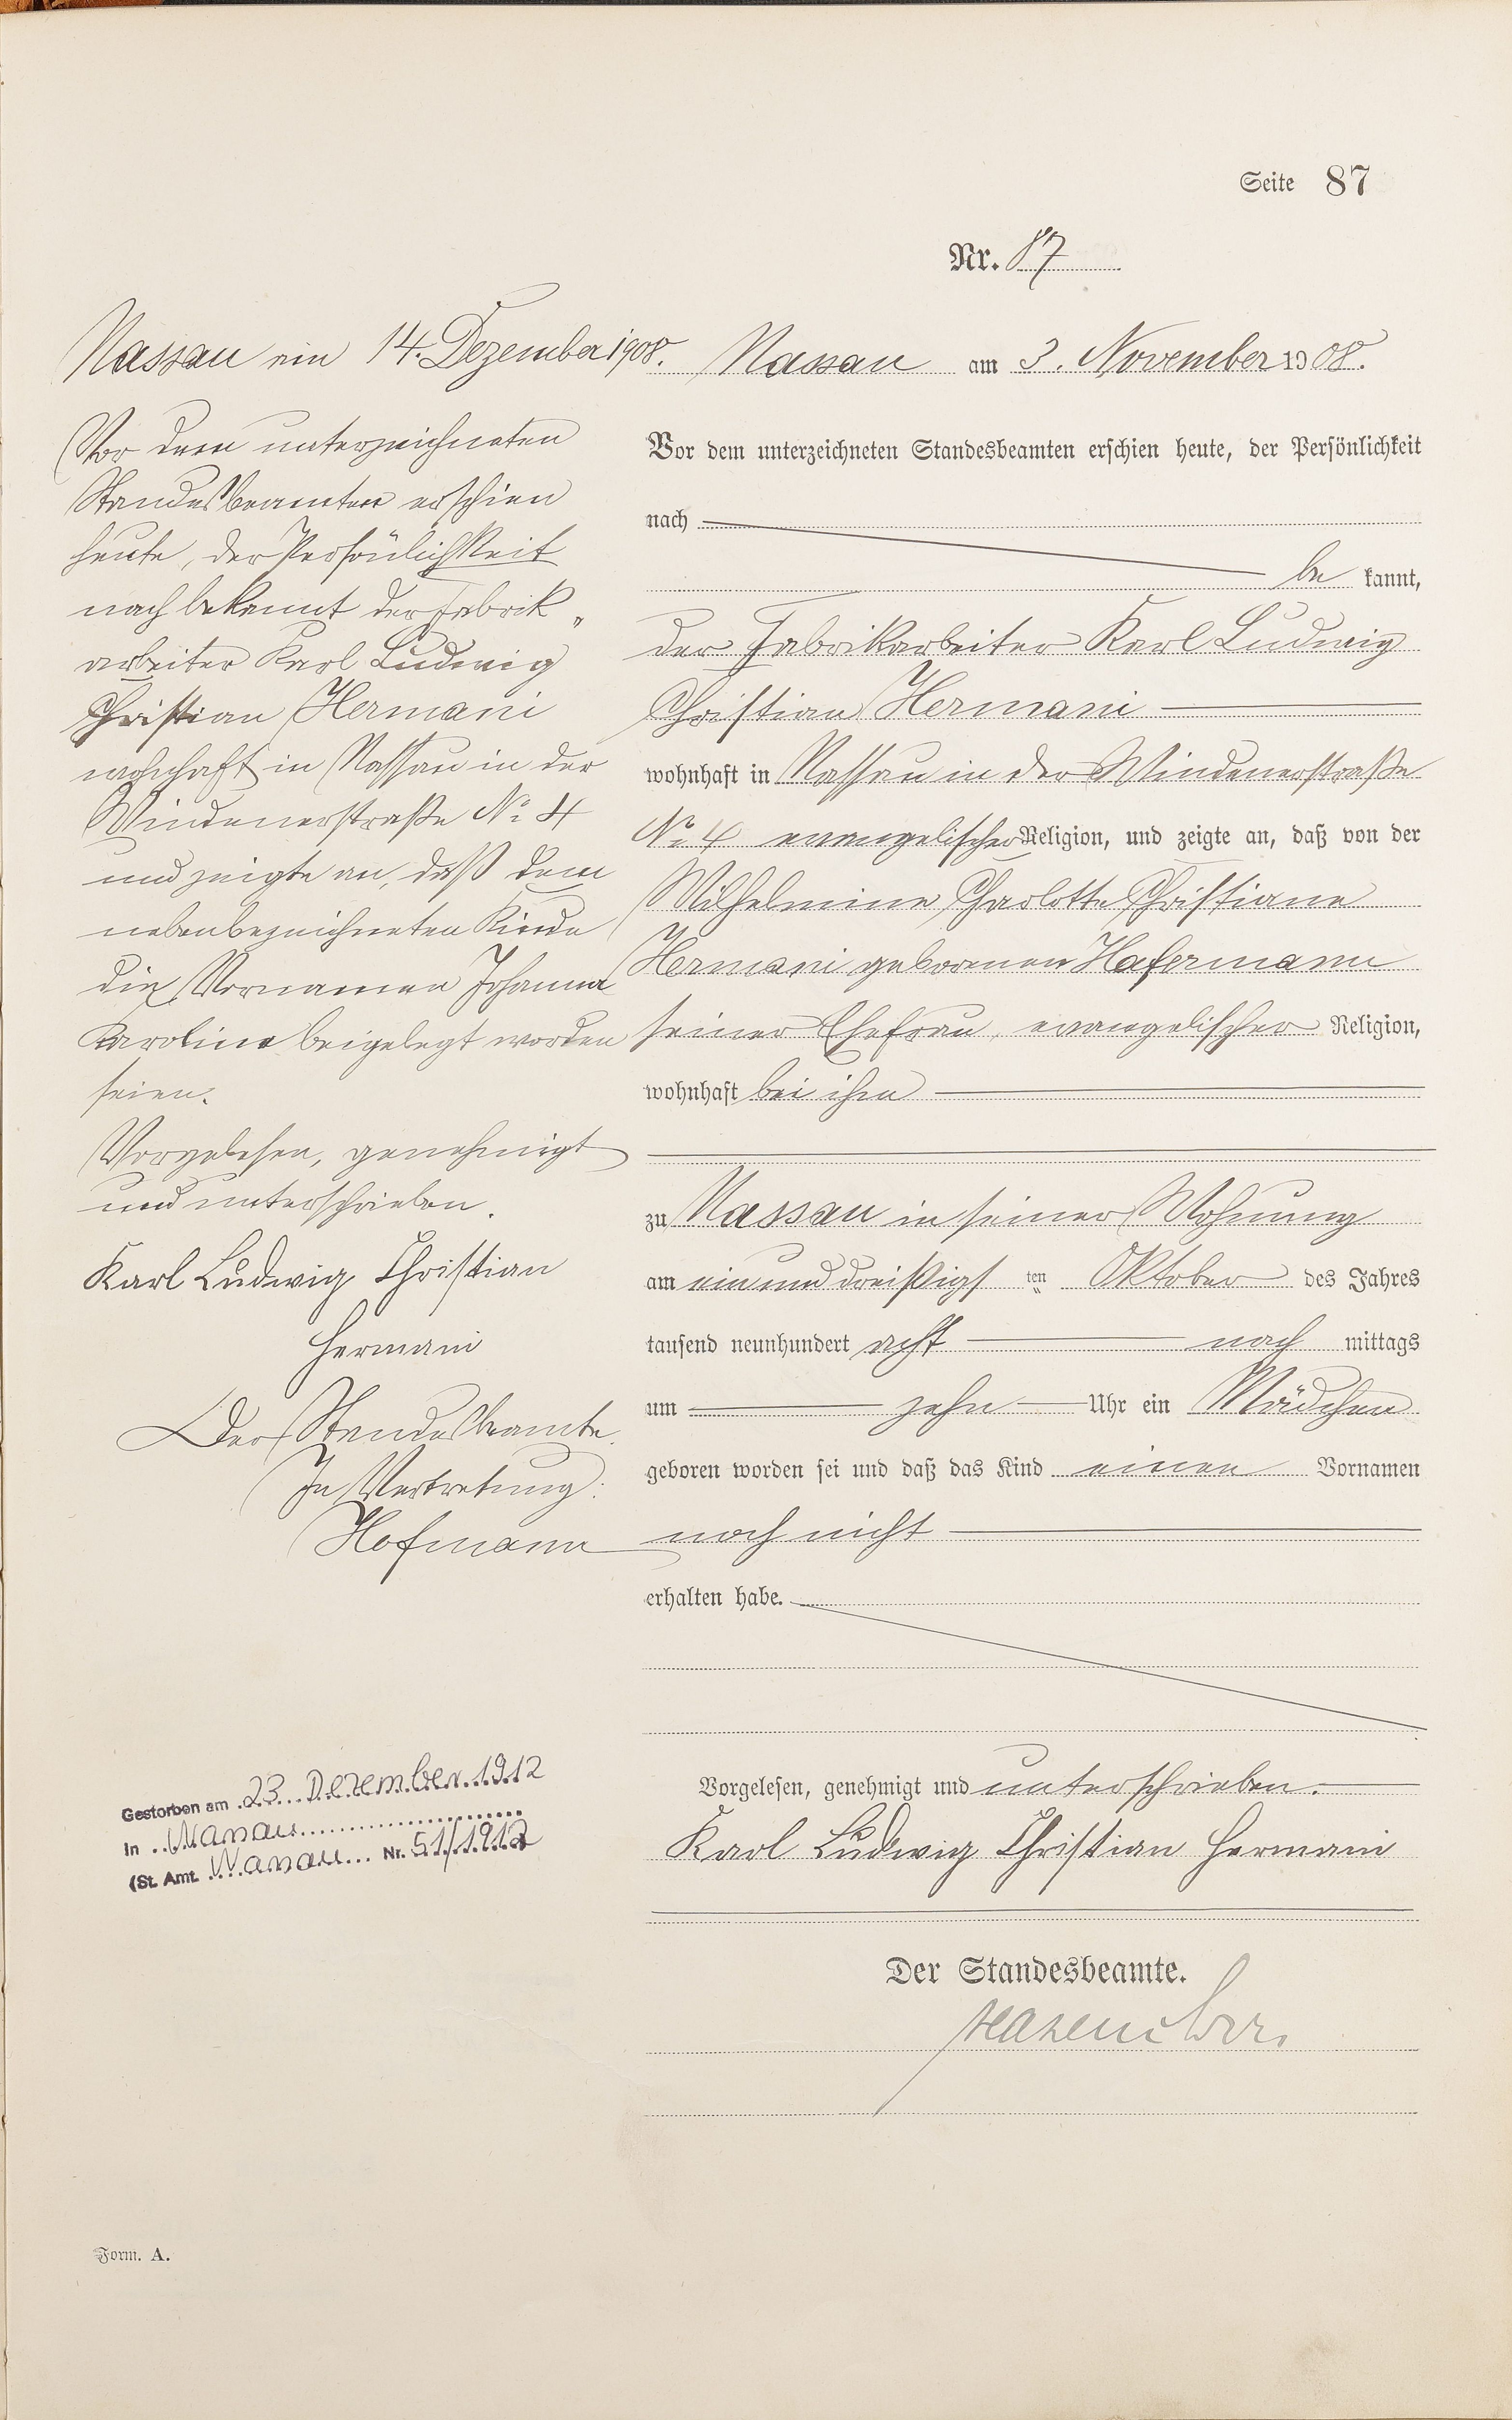 Seite 87
Nr. 87
Nassau am 3. November 1908.
Vor dem unterzeichneten Standesbeamten erschien heute, der Persönlichkeit
nach
be kannt,
der Fabrikarbeiter Karl Ludwig
Christian Hermani
wohnhaft in Nassau in der Windenerstraße
No 4 evangelischer Religion, und zeigte an, daß von der
Wilhelmine Charlotte Christiane
Hermani geborenen Hafermann
seiner Ehefrau, evangelischer Religion,
wohnhaft bei ihm
zu Nassau in seiner Wohnung
am ein und dreißigs ten Oktober des Jahres
tausend neunhundert acht nach mittags
um zehn Uhr ein Mädchen
geboren worden sei und daß das Kind einen Vornamen
noch nicht
erhalten habe.
Vorgelesen, genehmigt und unterschrieben.
Karl Ludwig Christian Hermani
Der Standesbeamte.
Nassau am 14. Dezember 1908.
Vor dem unterzeichneten
Standesbeamten erschien
heute, der Persönlichkeit
nach bekannt der Fabrik„
arbeiter Karl Ludwig
Christian Hermani
wohnhaft in Nassau in der
Windenerstraße No 4
und zeigte an, daß dem
nebenbezeichneten Kinde
die Vornamen Johanna
Karoline beigelegt worden
seien.
Vorgelesen, genehmigt
und unterschrieben.
Karl Ludwig Christian
Hermani
Der Standesbeamte.
In Vertretung:
Hofmann
Gestorben am 23. Dezember 1912
In Nassau
(St. Amt. Nassau Nr. 51/1912
Form. A.